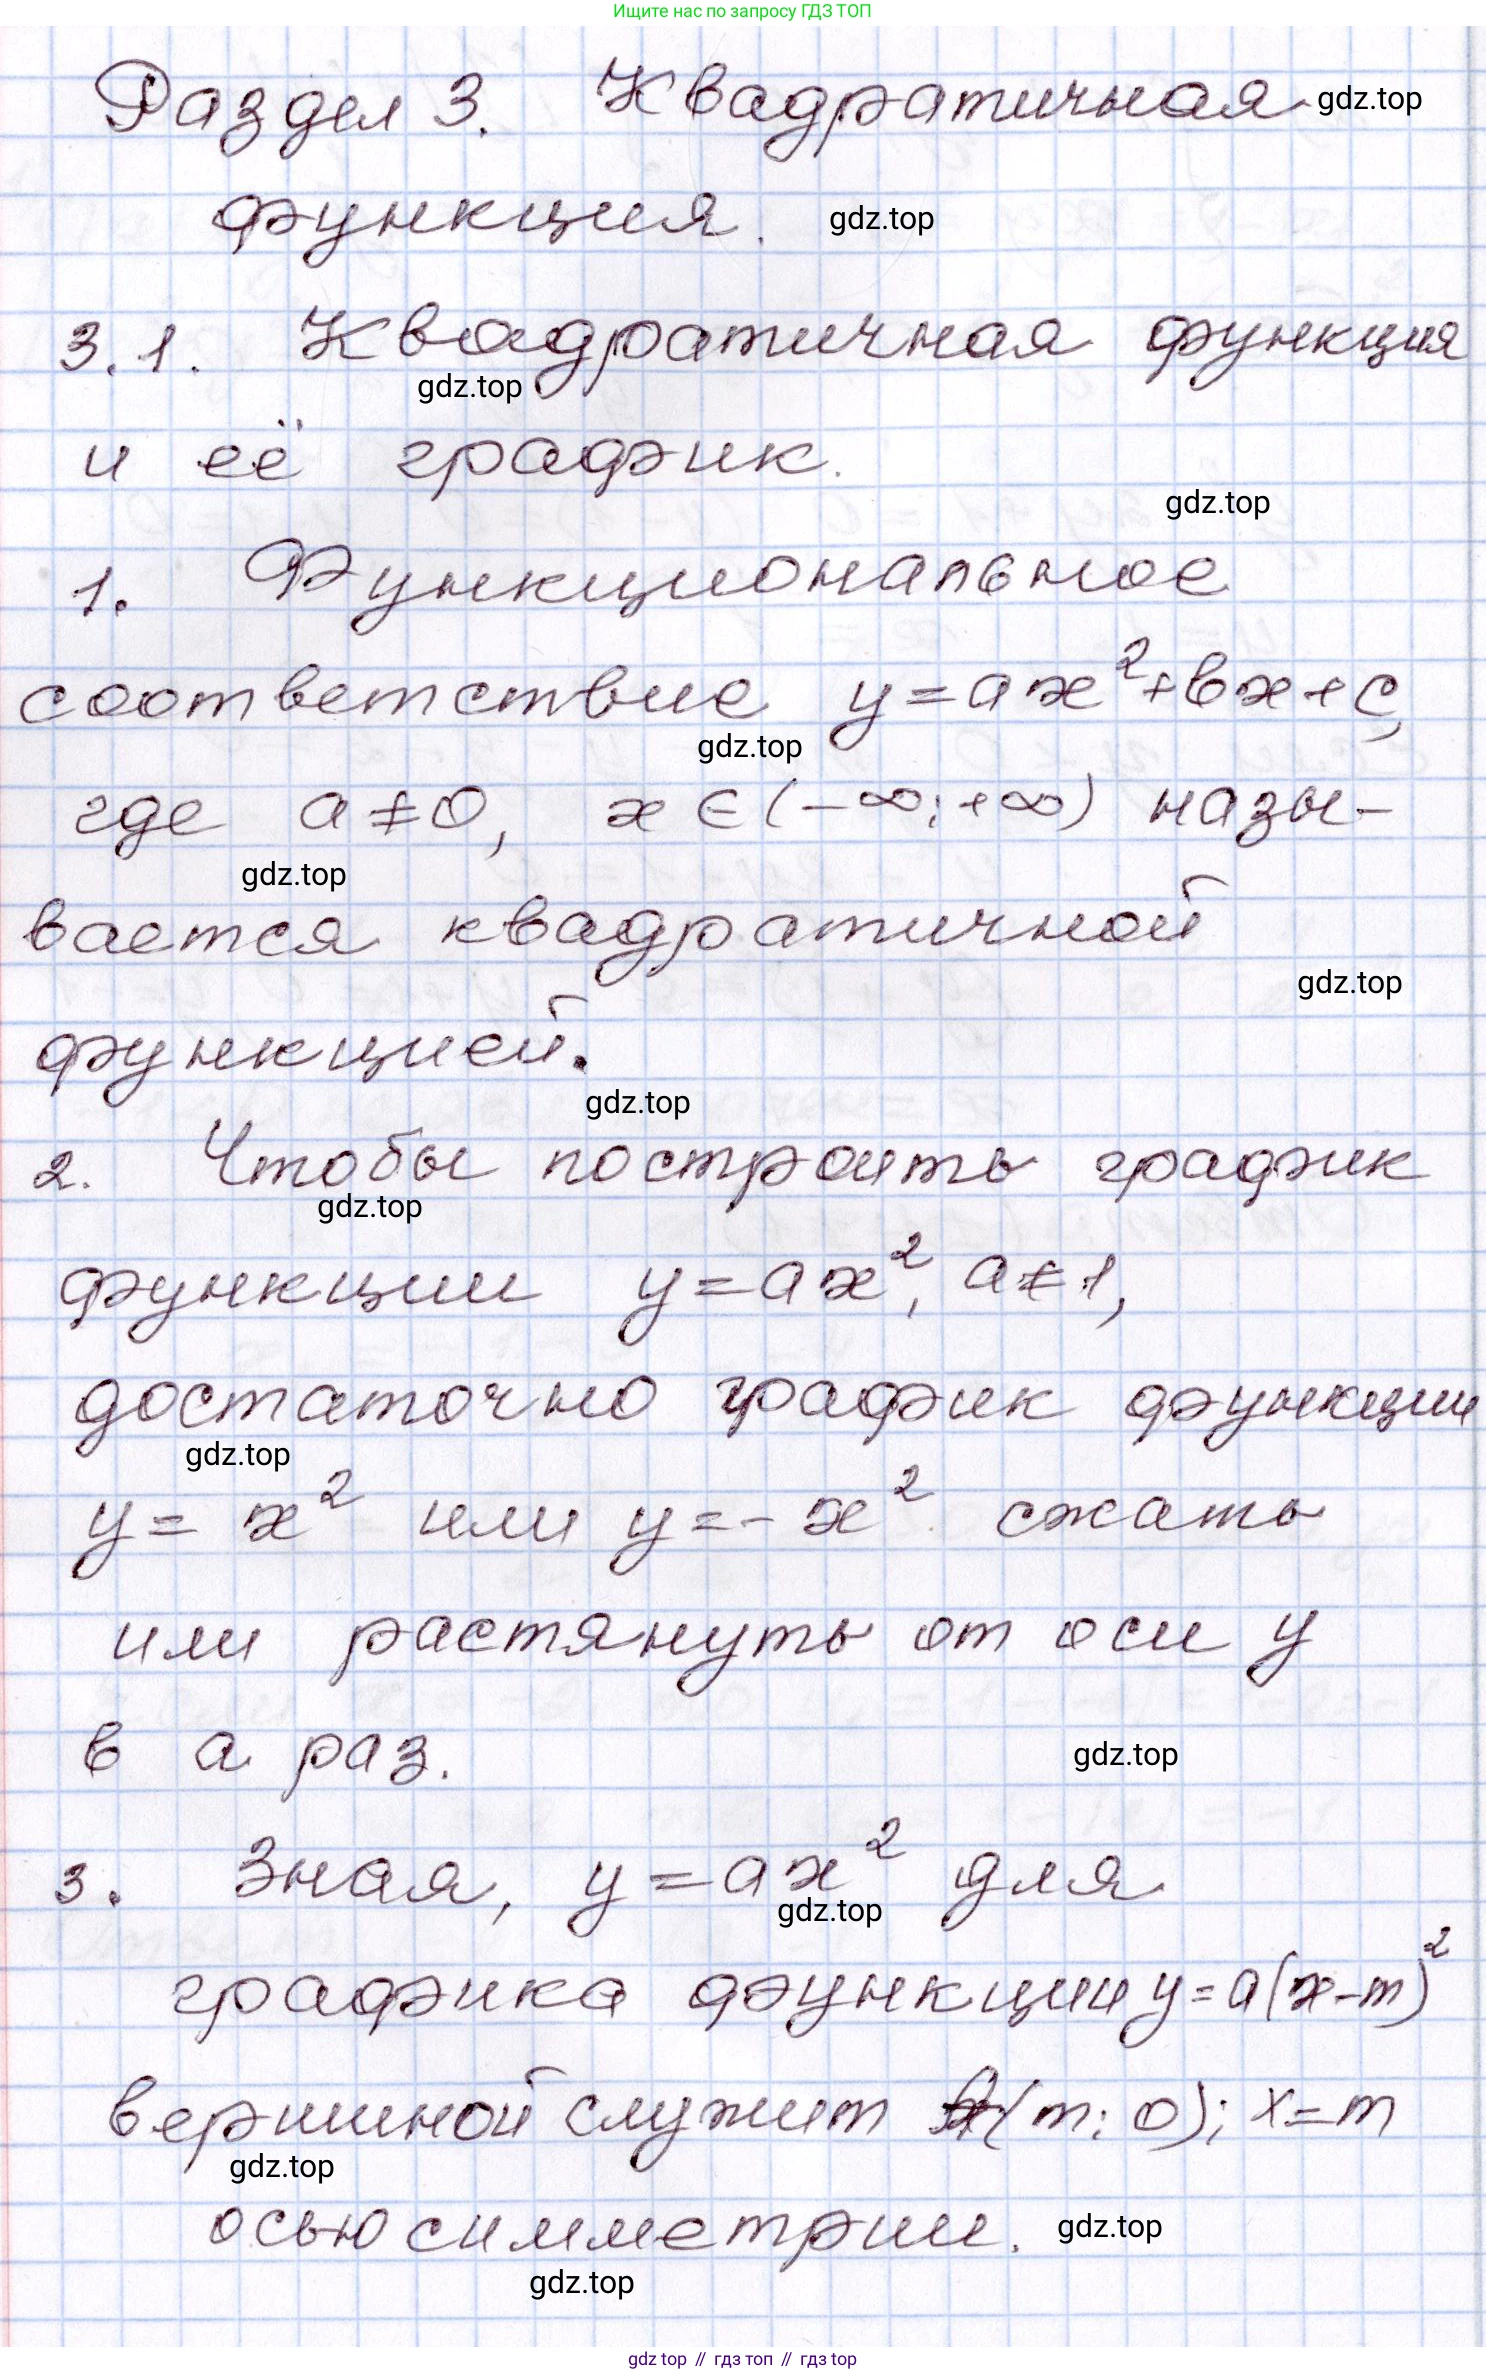 Ищите нас по запросу ГДЗ ТОП
Раздел 3. Квадратичная gdz.top
функция. gdz.top
3.1. Квадратичная функция
gdz.top
и её график.
gdz.top
1. Функциональное
соответствие y=ax²+bx+c,
gdz.top
где a≠0, x∈(-∞;+∞) назы-
gdz.top
вается квадратичной
gdz.top
функцией.
gdz.top
2. Чтобы построить график
gdz.top
функции y=ax², a≠1,
достаточно график функции
gdz.top
y= x² или y=-x² сжать
или растянуть от оси y
в а раз. gdz.top
3. Зная, y=ax² для
gdz.top
графика функции y=a(x-m)²
вершиной служит (m; 0); x=m
gdz.top
осью симметрии. gdz.top
gdz.top
gdz top // гдз топ // гдз top